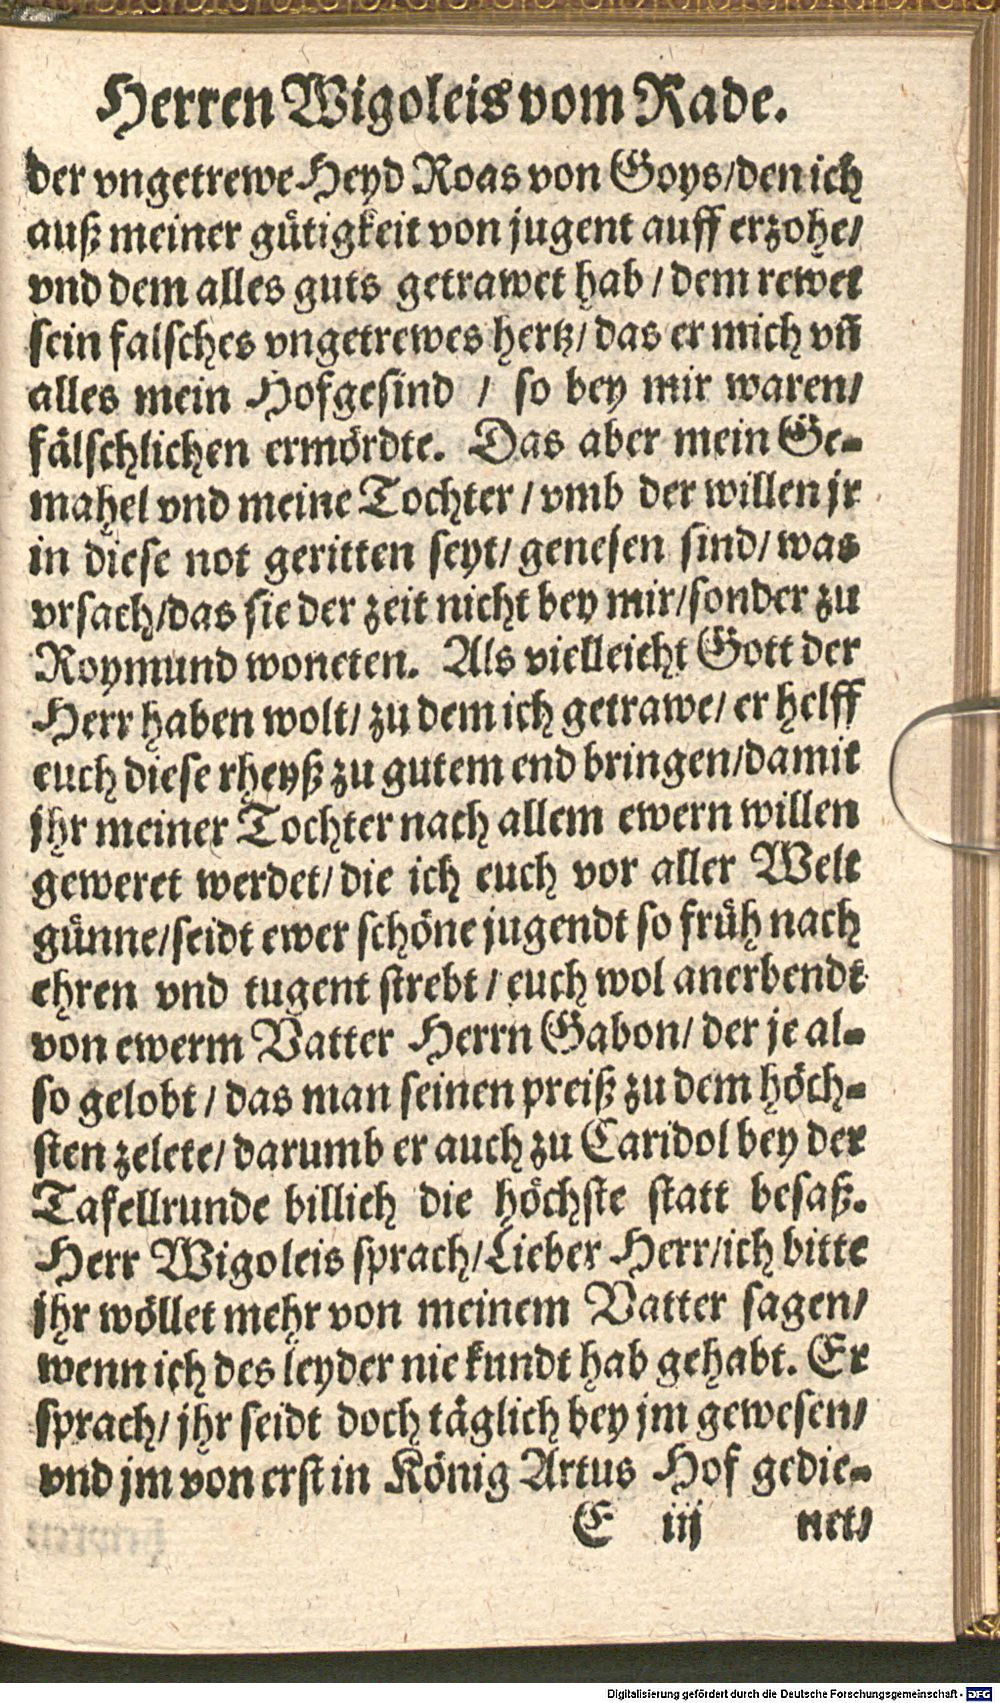 Herren Wigoleis vom Rade.
der vngetrewe Heyd Roas von Goys/den ich
auß meiner gütigkeit von jugent auff erzohe/
vnd dem alles guts getrawet hab / dem rewet
sein falsches vngetrewes hertz/ das er mich vñ
alles mein Hofgesind / so bey mir waren/
fälschlichen ermördte. Das aber mein Ge-
mahel vnd meine Tochter / vmb der willen jr
in diese not geritten seyt/ genesen sind/ was
vrsach/das sie der zeit nicht bey mir/sonder zu
Roymund woneten. Als vielleicht Gott der
Herr haben wolt/ zu dem ich getrawe/ er helff
euch diese rheyß zu gutem end bringen/damit
jhr meiner Tochter nach allem ewern willen
geweret werdet/ die ich euch vor aller Welt
günne/seidt ewer schöne jugendt so früh nach
ehren vnd tugent strebt / euch wol anerbendt
von ewerm Vatter Herrn Gabon/ der je al-
so gelobt / das man seinen preiß zu dem höch-
sten zelete/ darumb er auch zu Caridol bey der
Tafellrunde billich die höchste statt besaß.
Herr Wigoleis sprach/Lieber Herr/ich bitte
jhr wöllet mehr von meinem Vatter sagen/
wenn ich des leyder nie kundt hab gehabt. Er
sprach/ jhr seidt doch täglich bey jm gewesen/
vnd jm von erst in König Artus Hof gedie-
E iij net/
Digitalisierung gefördert durch die Deutsche Forschungsgemeinschaft - DFG